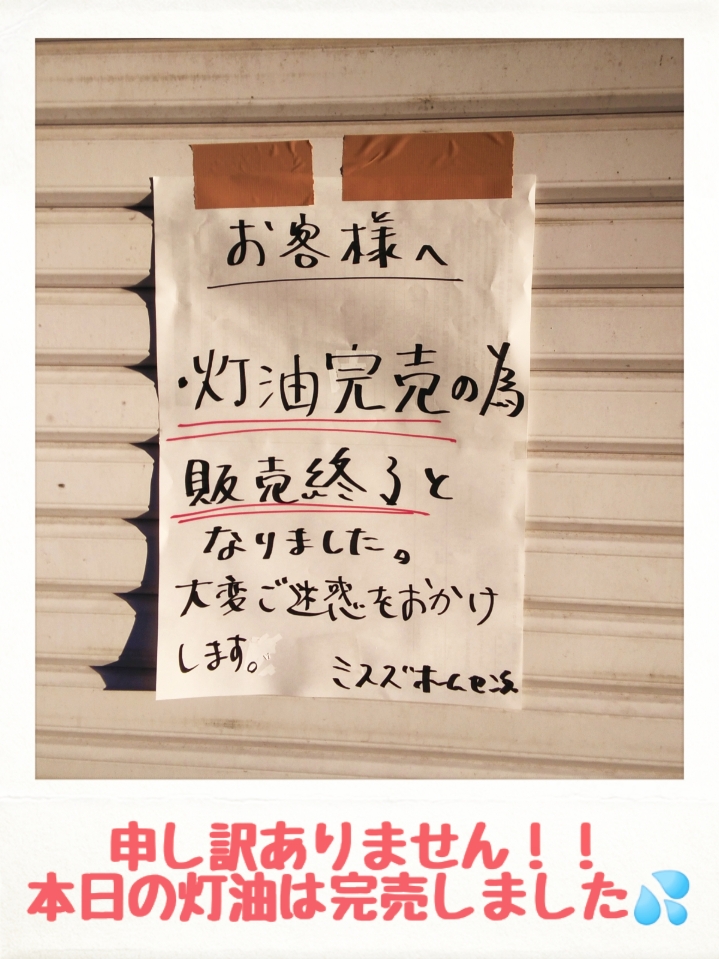 お客様へ
・灯油完売の為
販売終了と
なりました。
大変ご迷惑をおかけ
します。
ミスズホームセ
申し訳ありません！！
本日の灯油は完売しました💦